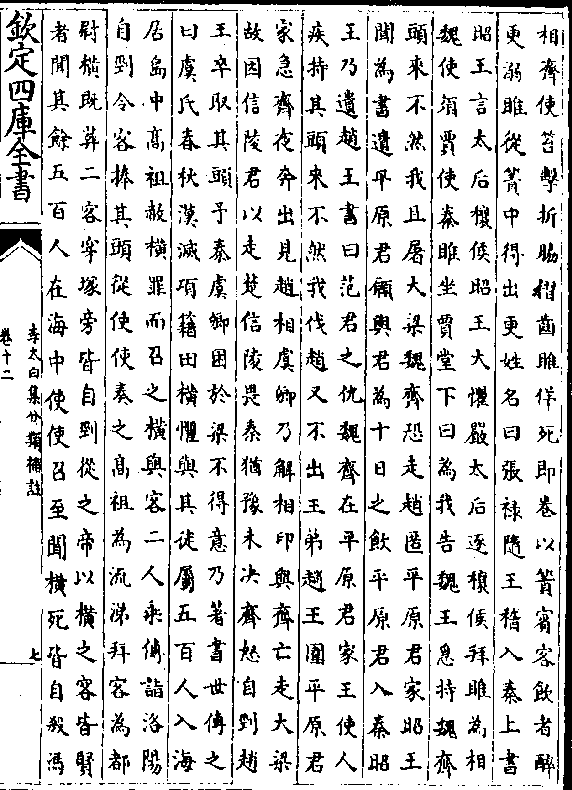 相齊使笞擊折脇摺齒睢佯死即卷以簀賓客飲者醉
更溺睢從簀中得出更姓名曰張祿隨王稽入秦上書
昭王言太后穰侯昭王大懼嚴太后逐穰侯拜睢為相
魏使須賈使秦睢坐賈堂下曰為我告魏王急持魏齊
頭來不然我且屠大梁魏齊恐走趙匿平原君家昭王
聞為書遺平原君願與君為十日之飲平原君入秦昭
王乃遺趙王書曰范君之仇魏齊在平原君家王使人
疾持其頭來不然我伐趙又不出王弟趙王圍平原君
家急齊夜奔出見趙相虞卿乃解相印與齊亡走大梁
故因信陵君以走楚信陵畏秦猶豫未決齊怒自剄趙
王卒取其頭予秦虞卿困於梁不得意乃著書世傳之
曰虞氏春秋漢滅項籍田橫懼與其徒屬五百人入海
居島中高祖赦橫罪而召之橫與客二人乘傳詣洛陽
自剄令客捧其頭從使使奏之高祖為流涕拜客為都
尉橫既葬二客穿塚旁皆自剄從之帝以橫之客皆賢
者聞其餘五百人在海中使使召至聞橫死皆自殺馮
欽定四庫全書
李太白集分類補註
卷十二
七